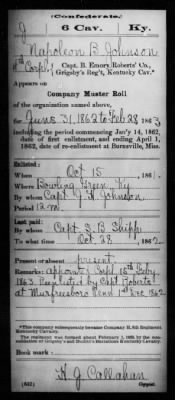 (Confederate.)
J 6 Cav. Ky.
Napoleon B Johnson
4th Corpl, Capt. B. Emory Roberts' Co.,
Grigsby's Reg't, Kentucky Cav.*
Appears on
Company Muster Roll
of the organization named above,
for June 31, 1862 to Feb 28, 1863,
including the period commencing Jan'y 14, 1862,
date of first enlistment, and ending April 1,
1862, date of re-enlistment at Burnsville, Miss.
Enlisted:
When Oct 15, 1861.
Where Bowling Green, Ky
By whom Capt J. H. Johnston
Period 12 m.
Last paid:
By whom Capt S. B. Shipp
To what time Oct 28, 1862
Present or absent present
Remarks: appoint Corpl 15th Feby
1863. Reenlisted by Capt Roberts
at Murfreesboro Tenn 1st Dec 1862
*This company subsequently became Company H, 8th Regiment
Kentucky Cavalry.
Book mark:
H. J. Callahan
(642) Copyist.